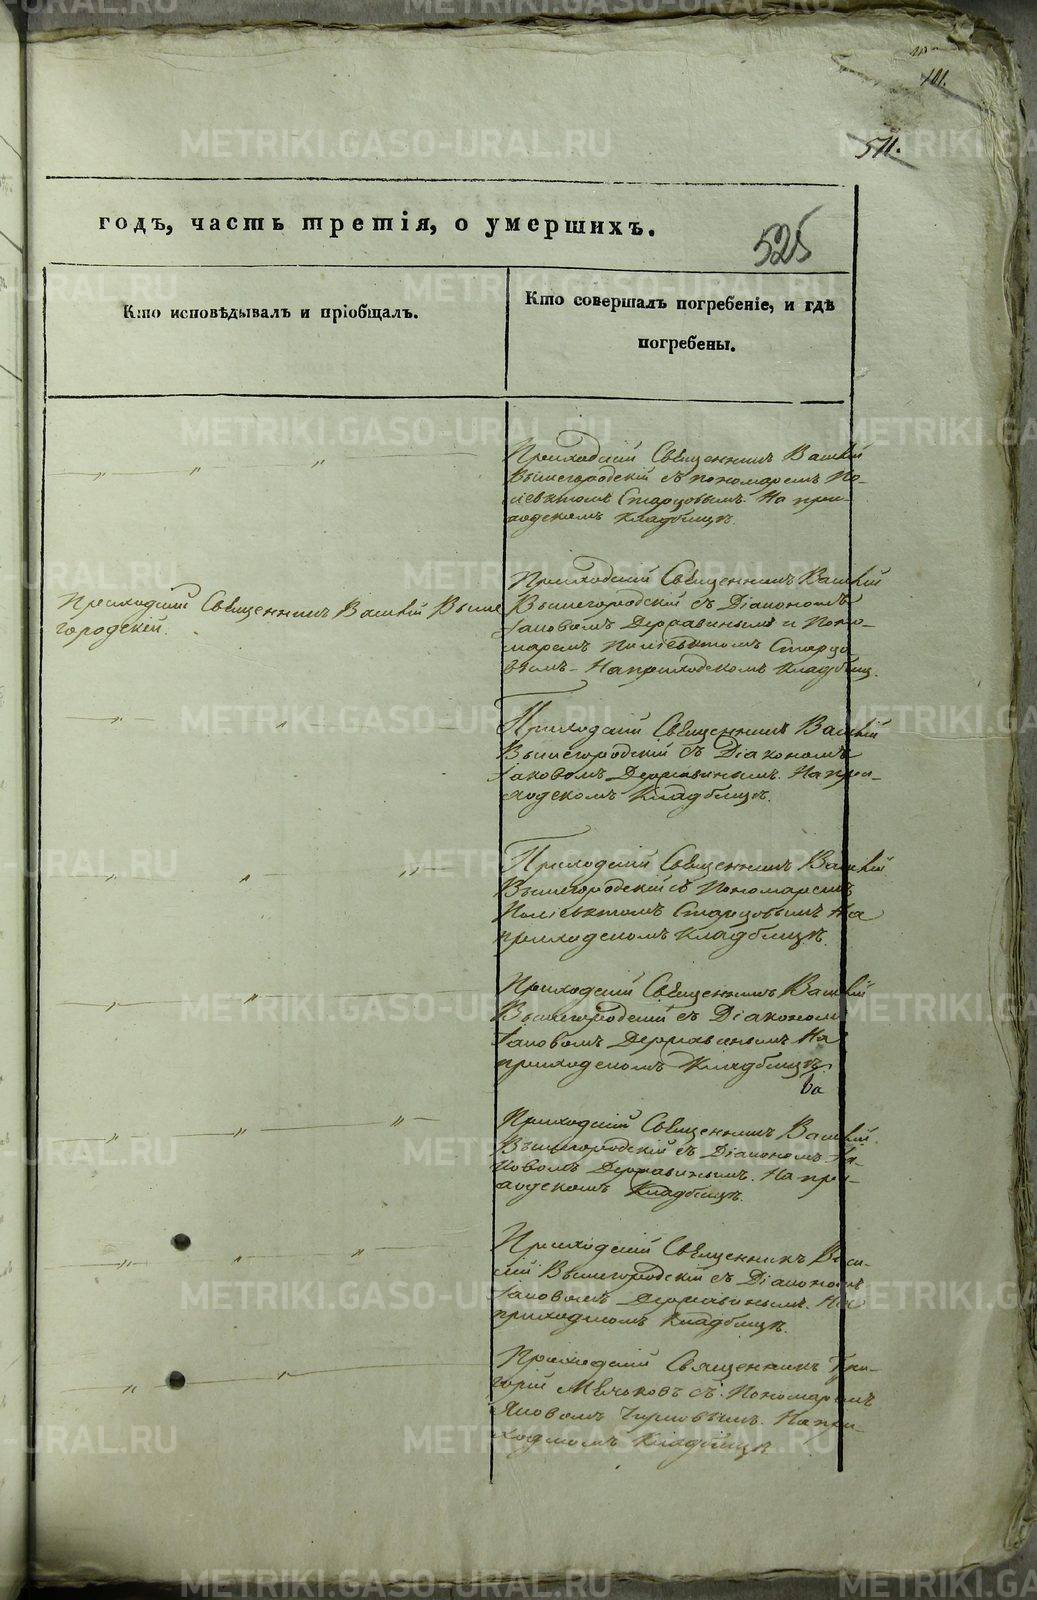 101.
511.
годъ, часть третія, о умершихъ.
525
Кто исповѣдывалъ и пріобщалъ.
Кто совершалъ погребеніе, и гдѣ
погребены.
Приходскій Священникъ Василій
Вышегородскій съ пономаремъ По-
ліевктомъ Старцовымъ. На при-
ходскомъ кладбищѣ.
Приходскій Священникъ Василій Выше
городскій.
Приходскій Священникъ Василій
Вышегородскій съ Діакономъ
Іаковомъ Державинымъ и Поно-
маремъ Поліевктомъ Старцо-
вымъ - На приходскомъ кладбищ.
Приходскій Священникъ Василій
Вышегородскій съ Діакономъ
Іаковомъ Державинымъ. На при-
ходскомъ Кладбищѣ.
Приходскій Священникъ Василій
Вышегородскій съ Пономаремъ
Поліевктомъ Старцовымъ На
приходскомъ кладбищѣ.
Приходскій Священникъ Василій
Вышегородскій съ Діакономъ
Іаковомъ Державинымъ На
приходскомъ Кладбищѣ.
Приходскій Священникъ Василій
Вышегородскій съ Діакономъ Іа-
ковомъ Державинымъ. На при-
ходскомъ Кладбищѣ.
Приходскій Священникъ Васи-
лій Вышегородскій съ Діакономъ
Іаковомъ Державинымъ. На
приходскомъ Кладбищѣ.
Приходскій Священникъ Гри-
горій съ Пономаремъ
Яковомъ На при-
ходскомъ Кладбищѣ
METRIKI.GASO-URAL.RU